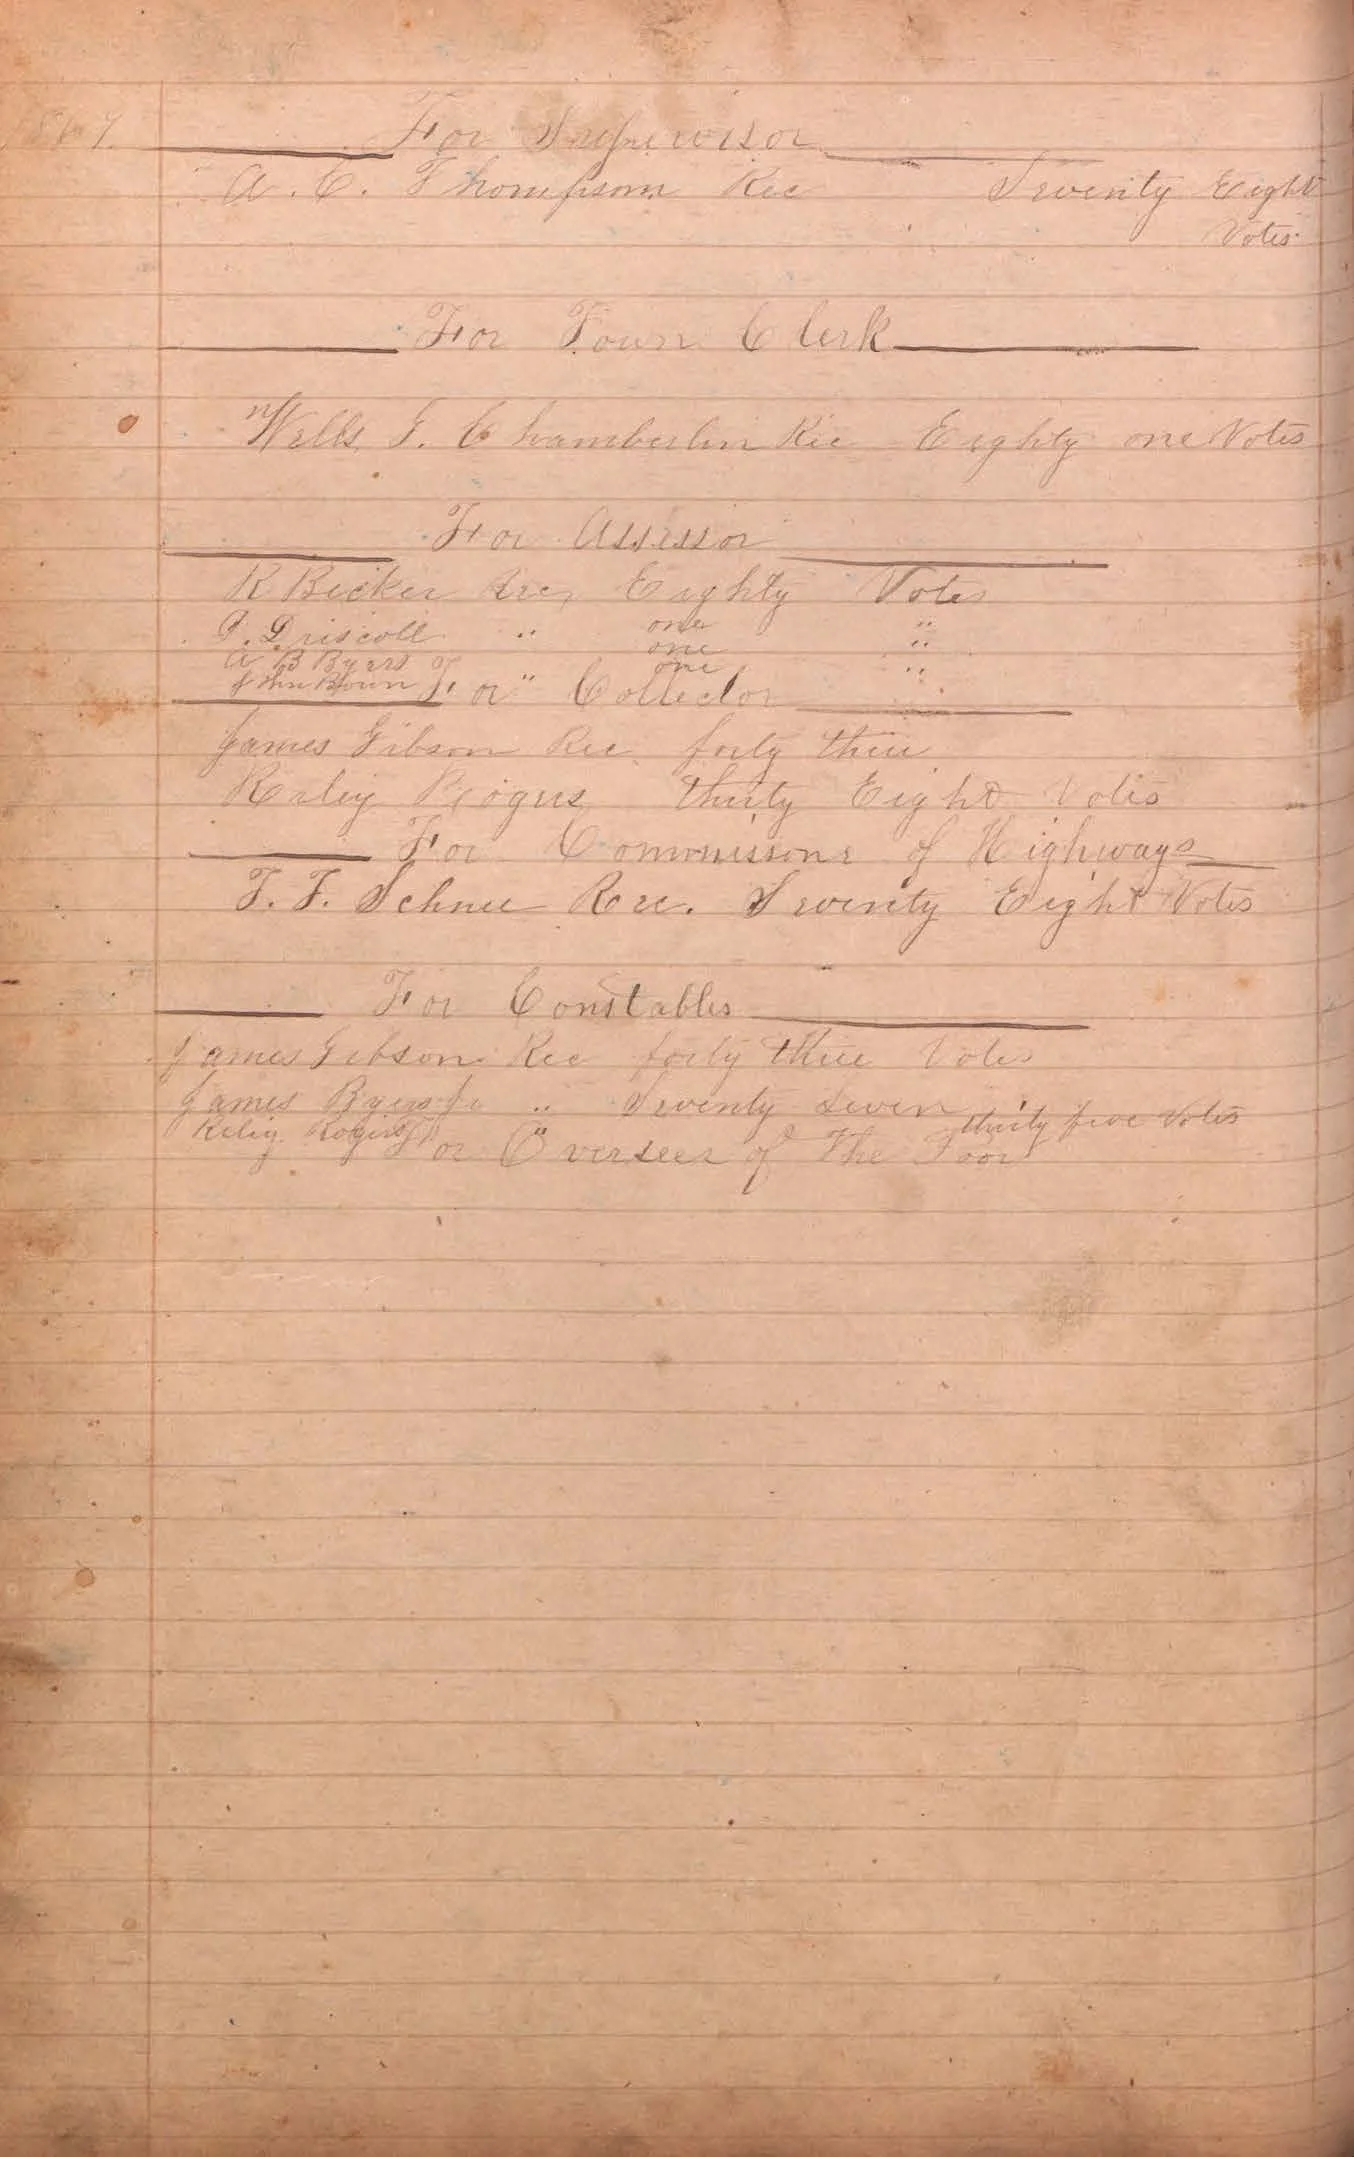 1869. For Supervisor
A. C. Thompson Rec Seventy Eight
Votes.
For Town Clerk
Wells G. Chamberlin Rec Eighty one Votes
For Assessor
R Becker Rec Eighty Votes
P. Driscoll " one "
A B Byers one "
John Brown " one "
For Collector
James Gibson Rec forty three
Reiley Rogers thirty Eight Votes
For Commissons of Highways
T. F. Schnee Rec. Seventy Eight Votes
For Constables
James Gibson Rec forty three Votes
James Byers Jr " Seventy Seven
Reliy Rogers " thirty five Votes
For Overseer of The Poor